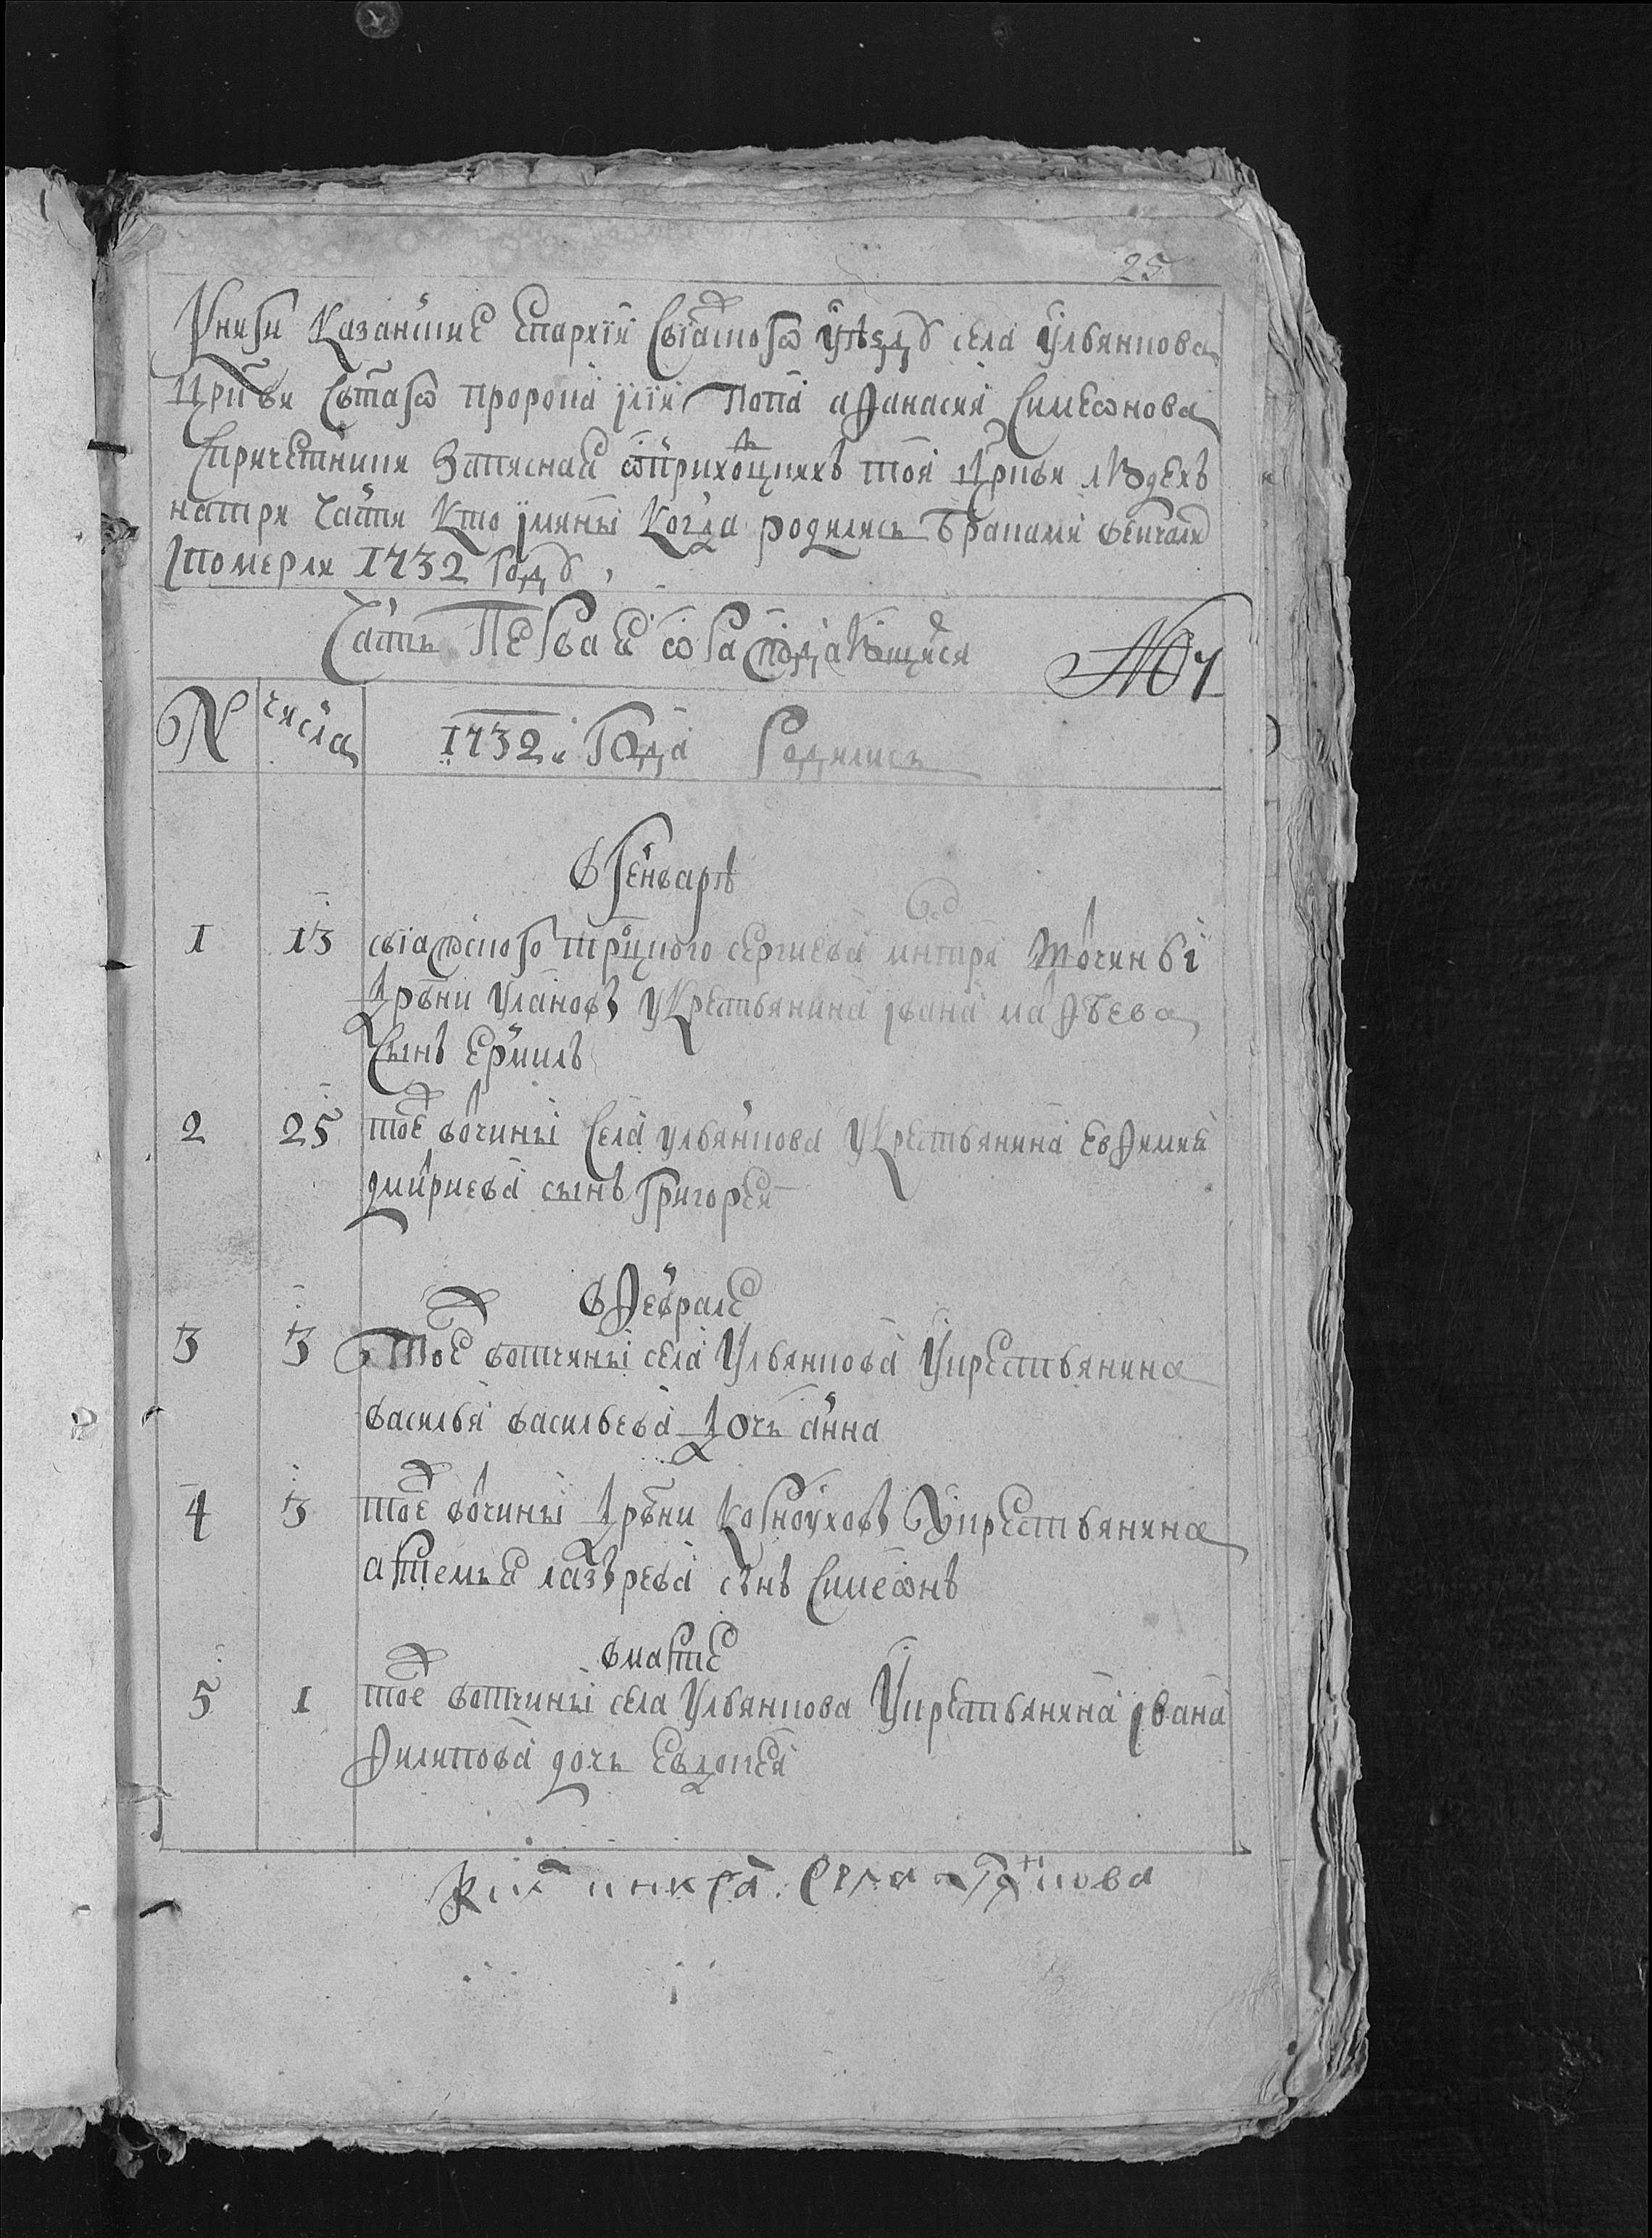 25
Книги Казанские Епархїи Свїяжского уѣзду села Ульянкова
Цркви Свтаго пророка Илїи Попа афанасия Симеонова
Спричетники Записная ѿ прихоцкихъ тоя цркви людехъ
натри Части Кто имяны Когда родились браками венчали
Ипомерли 1732 году
Часть Первая ѡ раждающихся №1
№ числа 1732 Года Родились
В Генварѣ
1 13 свїяжского троцкого сергиева мнтря вочины
дрвни Улановъ У Крестьянина ивана маѳѣева
Сынъ Ермилъ
2 25 тое вочины Села ульянкова У Крестьянина Евѳимия
дмитриева сынъ Григорей
В Ѳеврале
3 3 Тое вотчины села Ульянкова У крестьянина
василья васильева дочь анна
4 3 тое вочины дрвни Корноуховъ У крестьянина
артемья лазорева снъ Симеѡнъ
в марте
5 1 тое вотчины села Ульянкова У крестьянина ивана
Ѳилипова дочь Евдокея
села